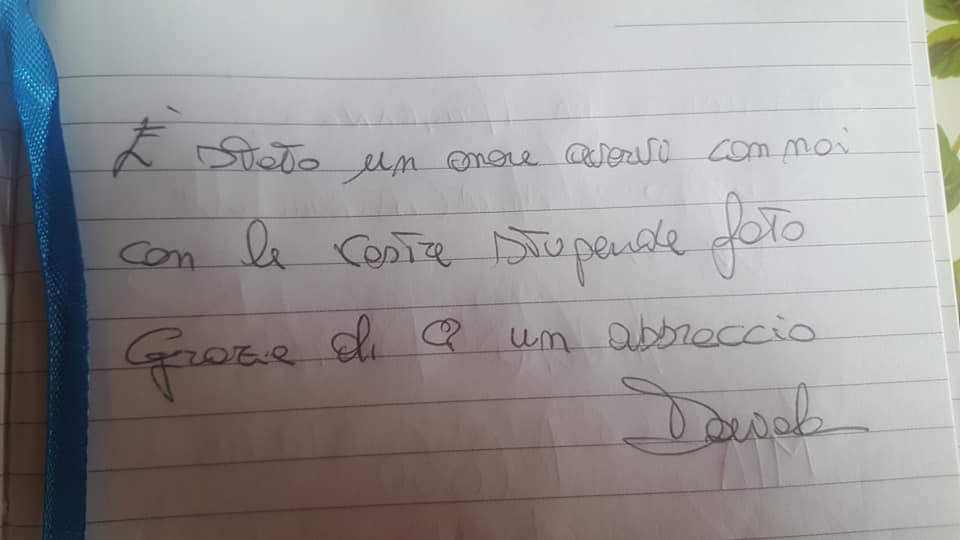 È stato un onore avervi con noi
con le vostre stupende foto
Grazie di q un abbraccio